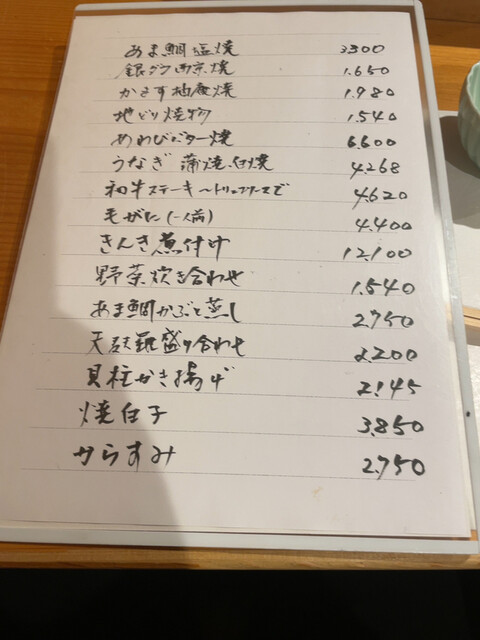 あま鯛塩焼 3300
銀ダラ西京焼 1.650
かます柚庵焼 1.980
地どり焼物 1.540
あわびバター焼 6.600
うなぎ 蒲焼.白焼 4.268
和牛ステーキ〜トリュフソースで 4.620
毛がに(一人前) 4.400
きんき煮付け 12100
野菜炊き合わせ 1.540
あま鯛かぶと蒸し 2.750
天麩羅盛り合わせ 2.200
貝柱かき揚げ 2.145
焼白子 3.850
からすみ 2.750